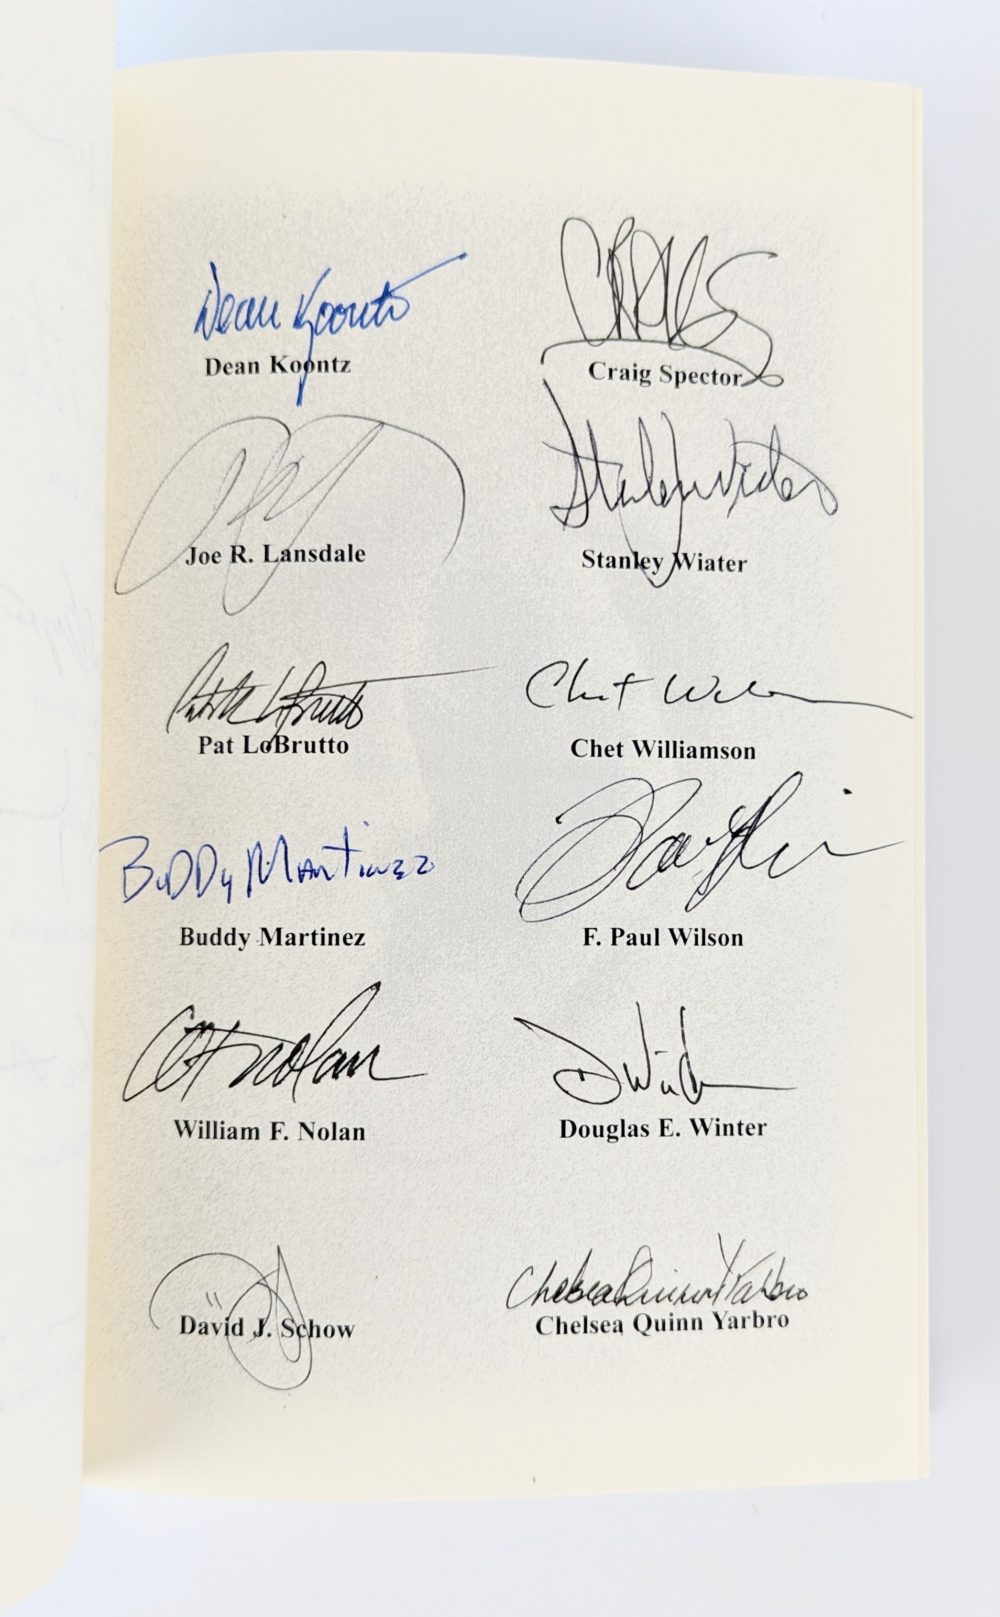 Dean Koontz
Dean Koontz
Craig Spector
Joe R. Lansdale
Stanley Wiater
Stanley Wiater
Pat LoBrutto
Pat LoBrutto
Chet Williamson
Buddy Martinez
Buddy Martinez
F. Paul Wilson
Nolan
William F. Nolan
Douglas E. Winter
David J. Schow
Chelsea Quinn Yarbro
Chelsea Quinn Yarbro